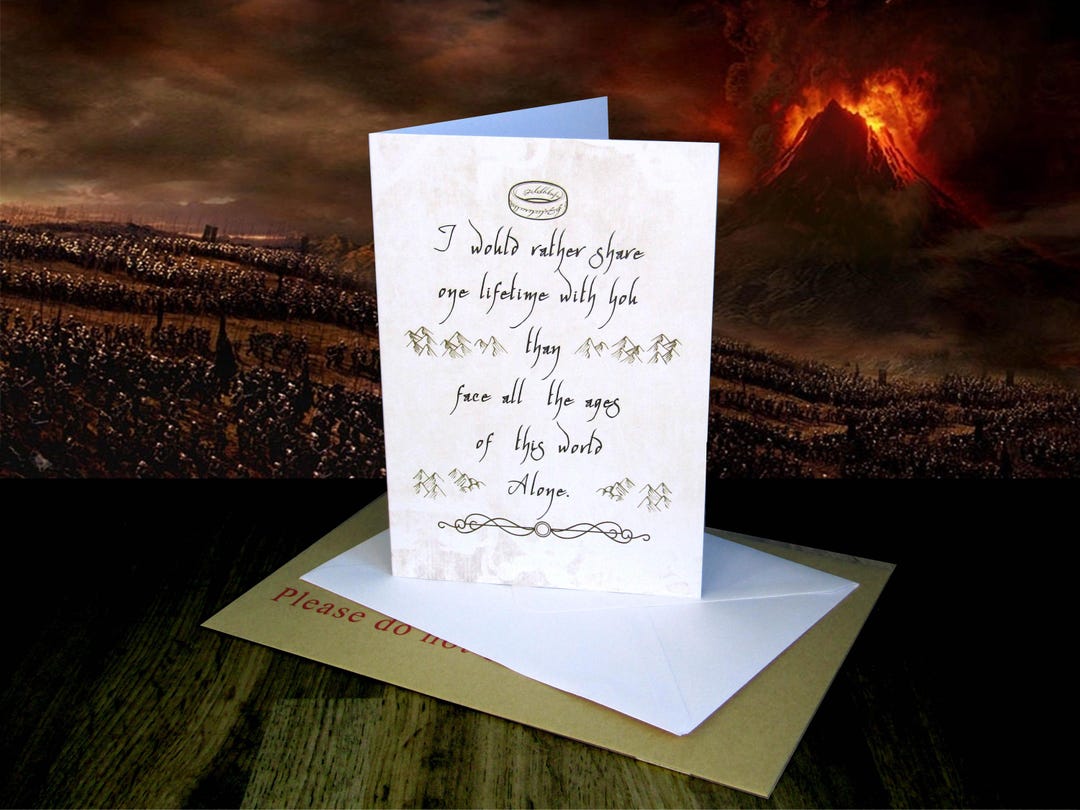 I would rather share
one lifetime with you
than
face all the ages
of this world
Alone.
Please do not